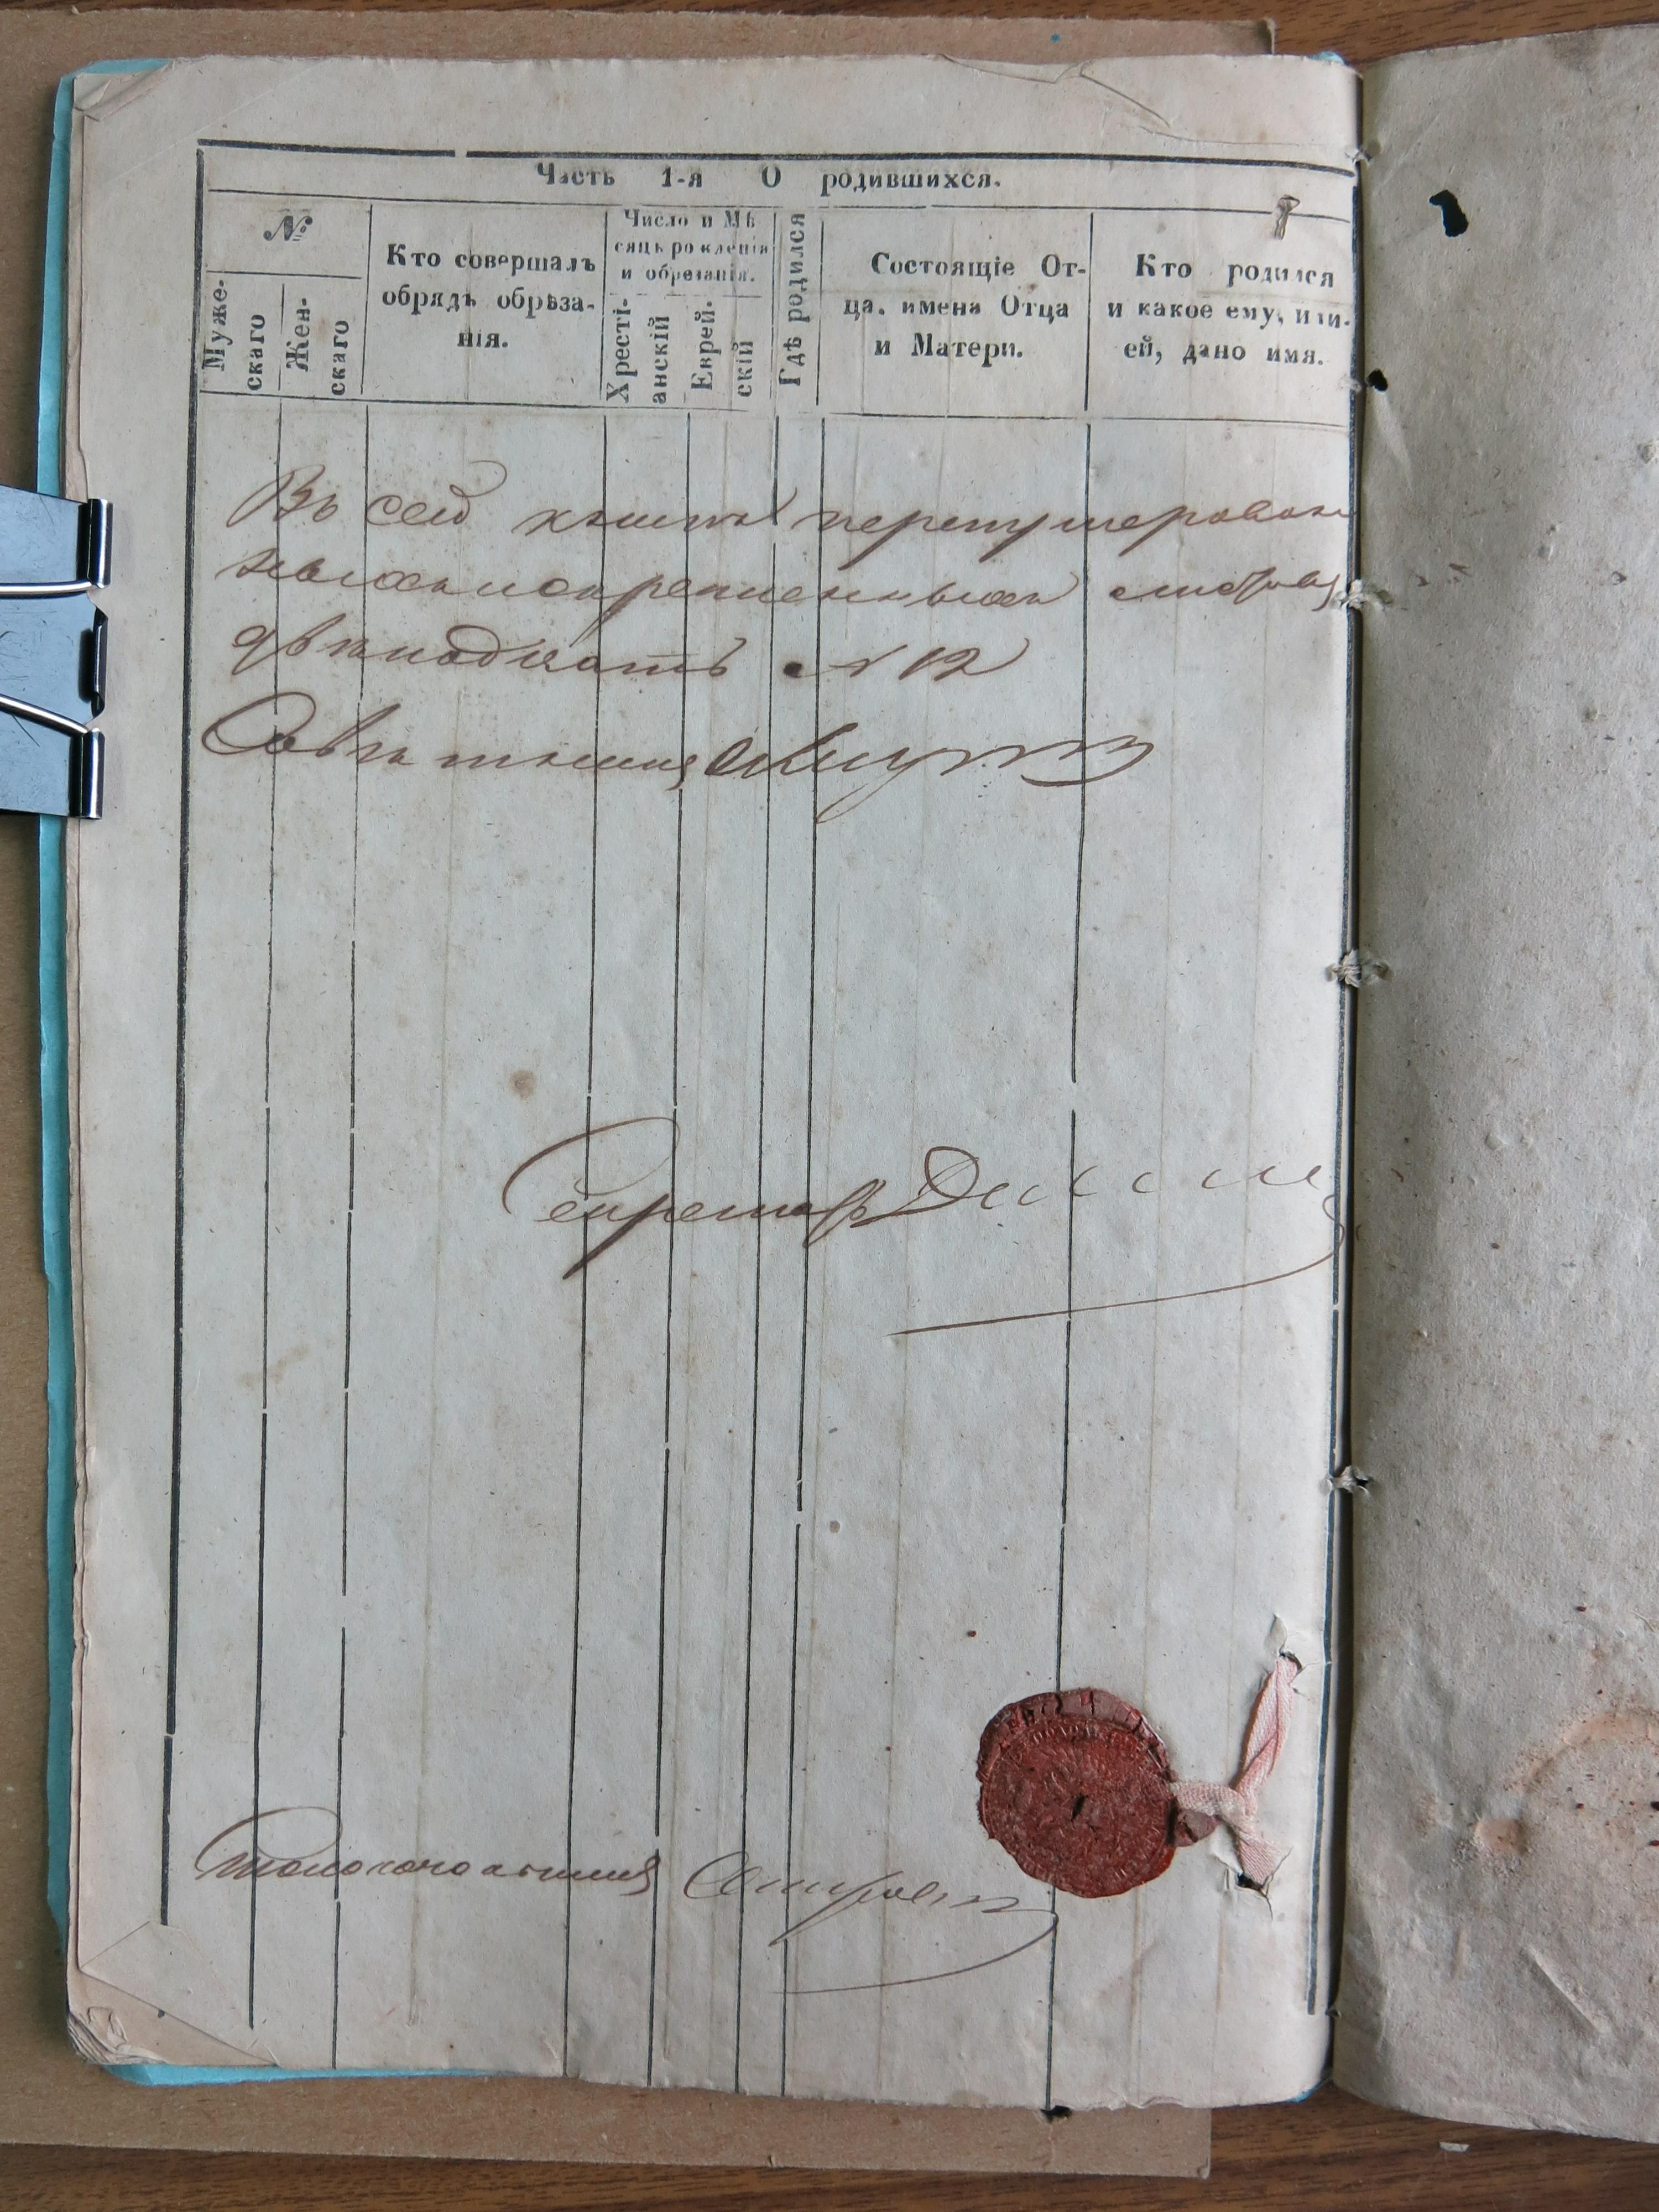 Часть 1-я О родившихся.
№
Муже-
скаго
Жен-
скаго
Кто совершалъ
обрядъ обрѣза-
нія.
Число и Мѣ
сяцъ рожденія
и обрезанія.
Хресті-
анскій
Еврей-
скій
Гдѣ родился
Состоящіе От-
ца, имена Отца
и Матери.
Кто родился
и какое ему, или
ей, дано имя.
Въ сей книгѣ перенумерован
ныхъ и скрепленныхъ листовъ
двѣнадцать № 12
Совѣтникъ
Секретарь
Столоначальникъ